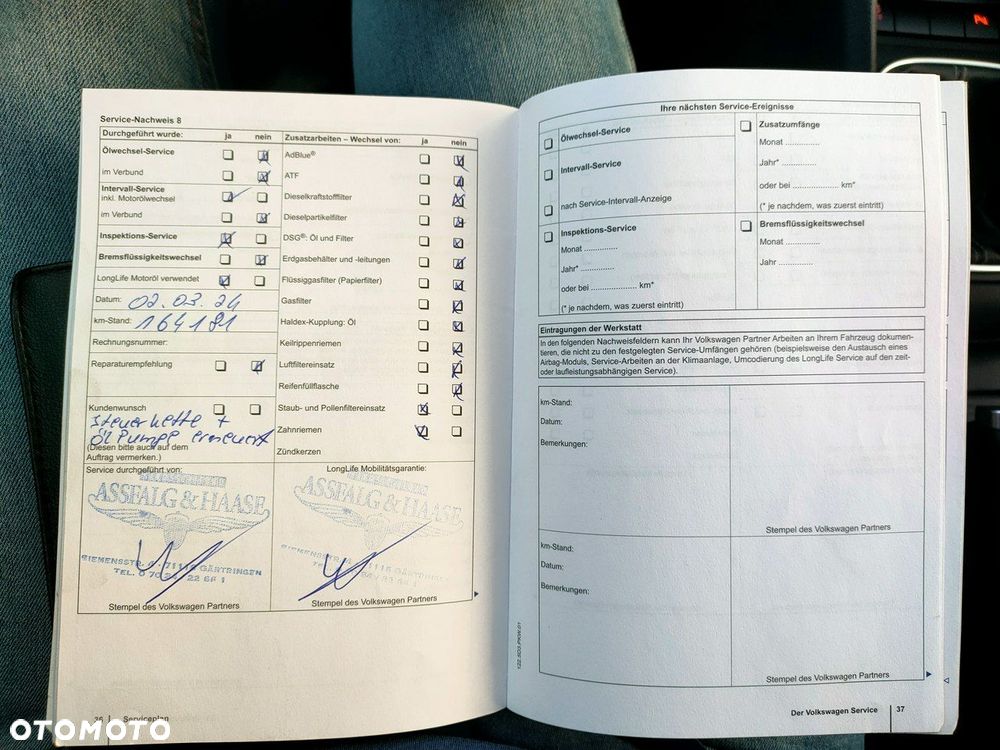 Service-Nachweis 8
Durchgeführt wurde: ja nein
Ölwechsel-Service
im Verbund
Intervall-Service
inkl. Motorölwechsel
im Verbund
Inspektions-Service
Bremsflüssigkeitswechsel
LongLife Motoröl verwendet
Datum: 02.03.24
km-Stand: 164181
Rechnungsnummer:
Reparaturempfehlung
Kundenwunsch
Steuerkette +
Öl Pumpe erneuert
(Diesen bitte auch auf dem
Auftrag vermerken.)
Zusatzarbeiten – Wechsel von: ja nein
AdBlue®
ATF
Dieselkraftstofffilter
Dieselpartikelfilter
DSG®: Öl und Filter
Erdgasbehälter und -leitungen
Flüssiggasfilter (Papierfilter)
Gasfilter
Haldex-Kupplung: Öl
Keilrippenriemen
Luftfiltereinsatz
Reifenfüllflasche
Staub- und Pollenfiltereinsatz
Zahnriemen
Zündkerzen
Service durchgeführt von:
ASSFALG & HAASE
SIEMENSSTR. 71116 GÄRTRINGEN
TEL. 0 70 34 / 22 66 1
Stempel des Volkswagen Partners
LongLife Mobilitätsgarantie:
ASSFALG & HAASE
71116 GÄRTRINGEN
Stempel des Volkswagen Partners
36 Serviceplan
Ihre nächsten Service-Ereignisse
Ölwechsel-Service
Intervall-Service
nach Service-Intervall-Anzeige
Inspektions-Service
Monat ..............
Jahr* ..............
oder bei ................... km*
(* je nachdem, was zuerst eintritt)
Zusatzumfänge
Monat ..............
Jahr* ..............
oder bei ................... km*
(* je nachdem, was zuerst eintritt)
Bremsflüssigkeitswechsel
Monat ..............
Jahr ..............
Eintragungen der Werkstatt
In den folgenden Nachweisfeldern kann Ihr Volkswagen Partner Arbeiten an Ihrem Fahrzeug dokumen-
tieren, die nicht zu den festgelegten Service-Umfängen gehören (beispielsweise den Austausch eines
Airbag-Moduls, Service-Arbeiten an der Klimaanlage, Umcodierung des LongLife Service auf den zeit-
oder laufleistungsabhängigen Service).
km-Stand:
Datum:
Bemerkungen:
Stempel des Volkswagen Partners
km-Stand:
Datum:
Bemerkungen:
Stempel des Volkswagen Partners
122.5D3.PKW.01
Der Volkswagen Service 37
OTOMOTO